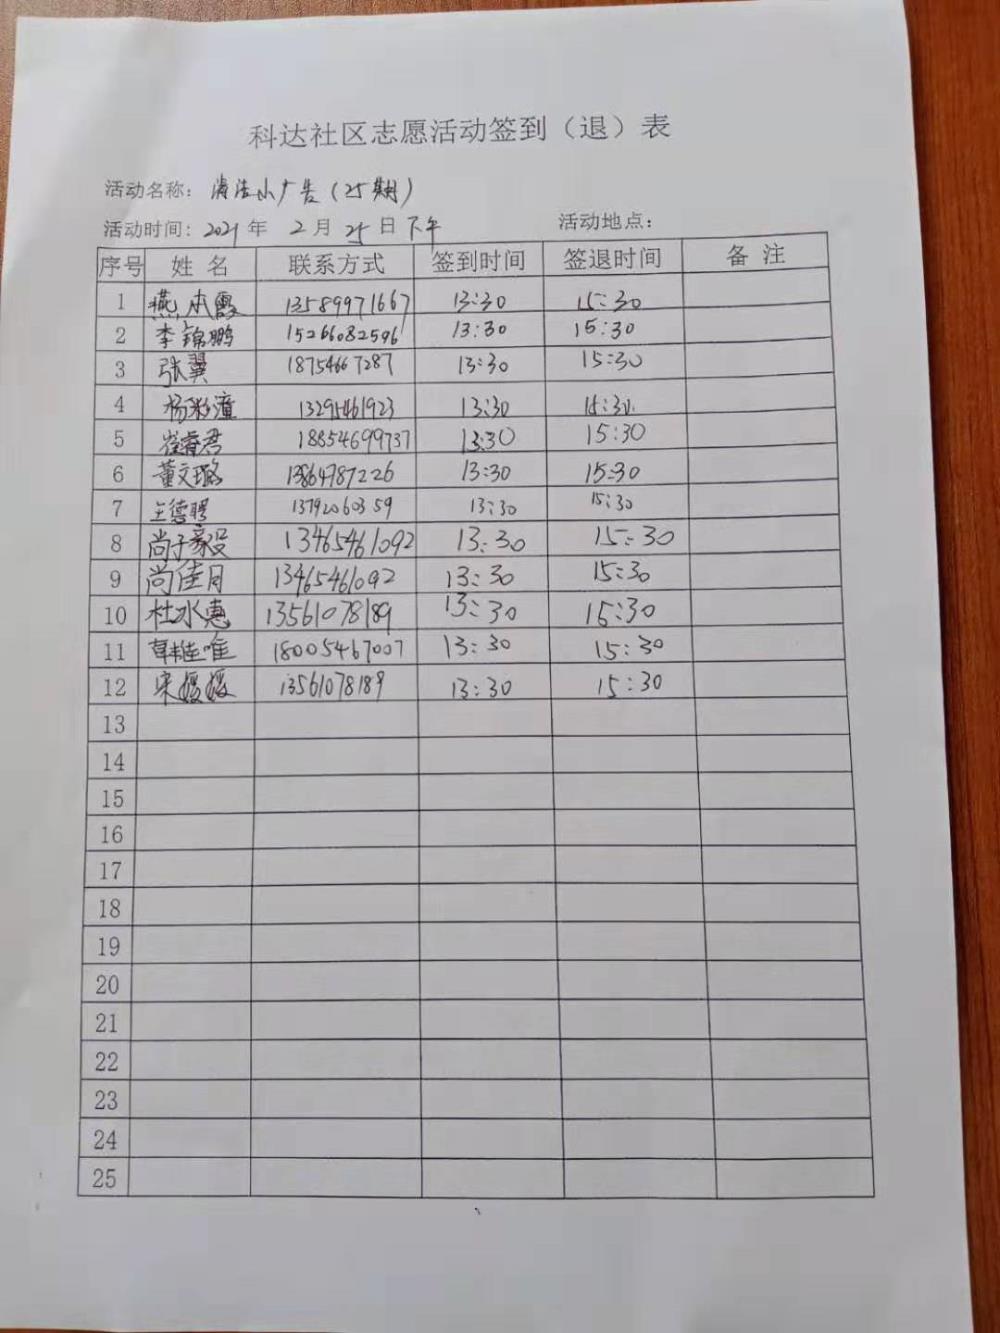 科达社区志愿活动签到（退）表
活动名称：清洁小广告（25期）
活动时间：2021年 2月 25日下午 活动地点：
序号 姓名 联系方式 签到时间 签退时间 备注
1 燕本霞 13589971667 13:30 15:30
2 李锦鹏 15266082596 13:30 15:30
3 张翼 18754667287 13:30 15:30
4 杨彩潼 13295461923 13:30 15:30
5 崔睿君 18854699737 13:30 15:30
6 董文璐 13864787226 13:30 15:30
7 王德聘 13792060359 13:30 15:30
8 尚子毅 13465461092 13:30 15:30
9 尚佳月 13465461092 13:30 15:30
10 杜水惠 13561078189 13:30 15:30
11 韩佳唯 18005467007 13:30 15:30
12 宋媛媛 13561078189 13:30 15:30
13
14
15
16
17
18
19
20
21
22
23
24
25